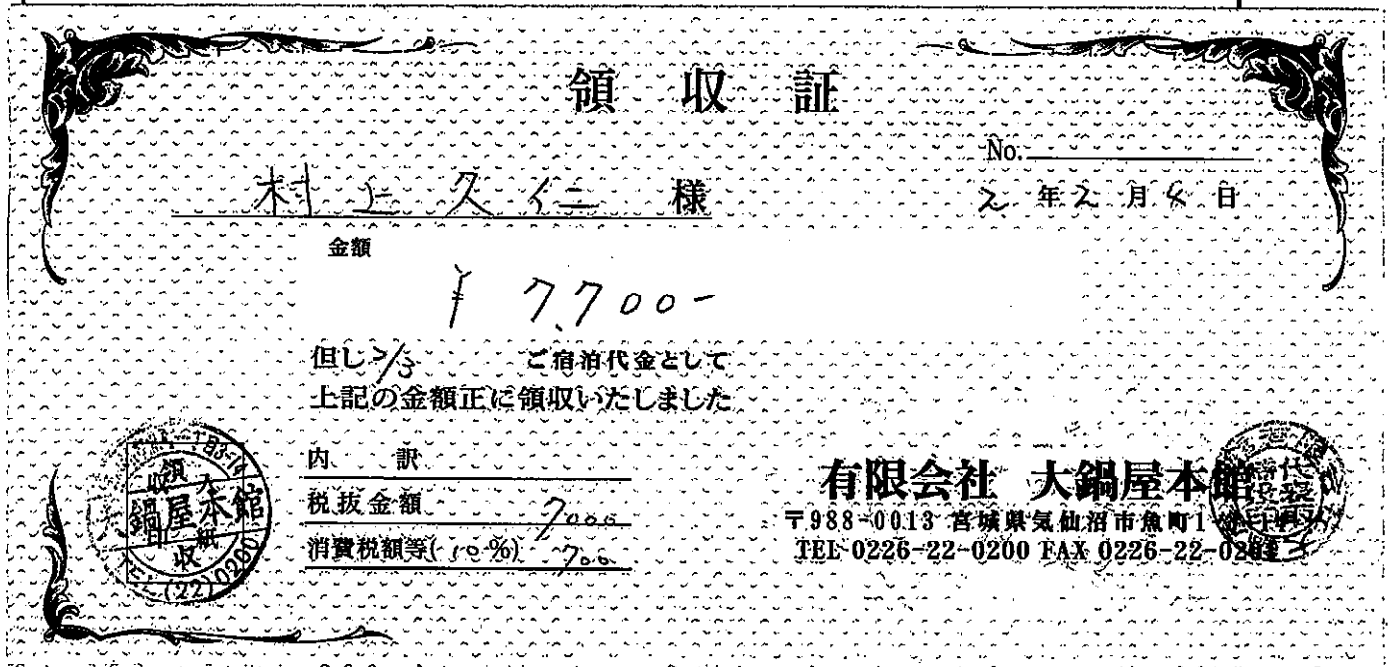 領収証
No.
村上久仁 様
2年2月4日
金額
¥7,700-
但し 2/3 ご宿泊代金として
上記の金額正に領収いたしました
内訳
税抜金額 7000
消費税額等(10%) 700
有限会社 大鍋屋本館
〒988-0013 宮城県気仙沼市魚町1
TEL 0226-22-0200 FAX 0226-22-
鍋屋本館
(22)0200